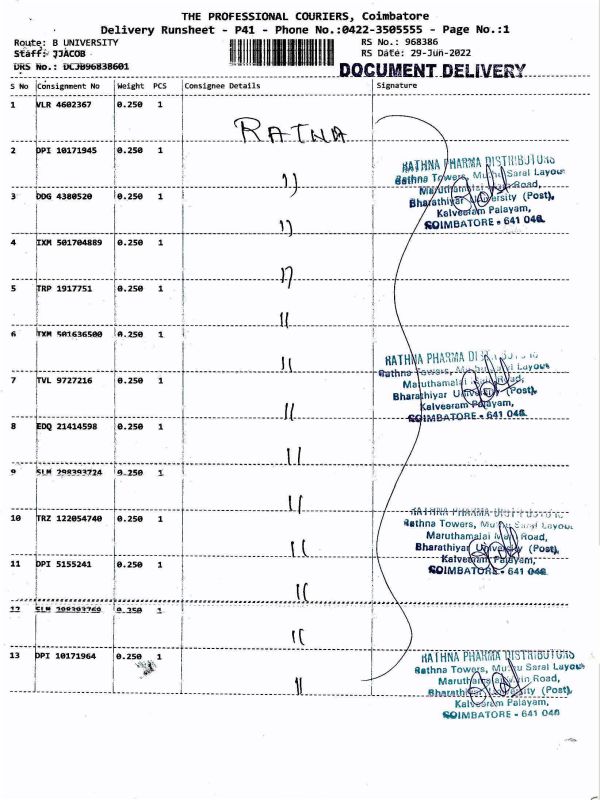 THE PROFESSIONAL COURIERS, Coimbatore
Delivery Runsheet - P41 - Phone No.:0422-3505555 - Page No.:1
Route: B UNIVERSITY
RS No.: 968386
Staff: JJACOB
RS Date: 29-Jun-2022
DRS No.: DCJB96838601
DOCUMENT DELIVERY
S No Consignment No Weight PCS Consignee Details Signature
1 VLR 4602367 0.250 1
RATNA
2 DPI 10171945 0.250 1 "
RATHNA PHARMA DISTRIBUTORS
Rathna Towers, Muthu Saral Layout
Maruthamalai Main Road,
Bharathiyar University (Post),
Kalveeram Palayam,
COIMBATORE - 641 046.
3 DDG 4380520 0.250 1 "
4 IXM 501704889 0.250 1 "
5 TRP 1917751 0.250 1 "
6 TXM 501636500 0.250 1 "
RATHNA PHARMA DISTRIBUTORS
Rathna Towers, Muthu Saral Layout
Maruthamalai Main Road,
Bharathiyar University (Post),
Kalveeram Palayam,
COIMBATORE - 641 046.
7 TVL 9727216 0.250 1 "
8 EDQ 21414598 0.250 1 "
9 SLM 298393724 0.250 1 "
10 TRZ 122054740 0.250 1 "
RATHNA PHARMA DISTRIBUTORS
Rathna Towers, Muthu Saral Layout
Maruthamalai Main Road,
Bharathiyar University (Post),
Kalveeram Palayam,
COIMBATORE - 641 046
11 DPI 5155241 0.250 1 "
12 SLM 298393760 0.250 1 "
13 DPI 10171964 0.250 1 "
RATHNA PHARMA DISTRIBUTORS
Rathna Towers, Muthu Saral Layout
Maruthamalai Main Road,
Bharathiyar University (Post),
Kalveeram Palayam,
COIMBATORE - 641 046